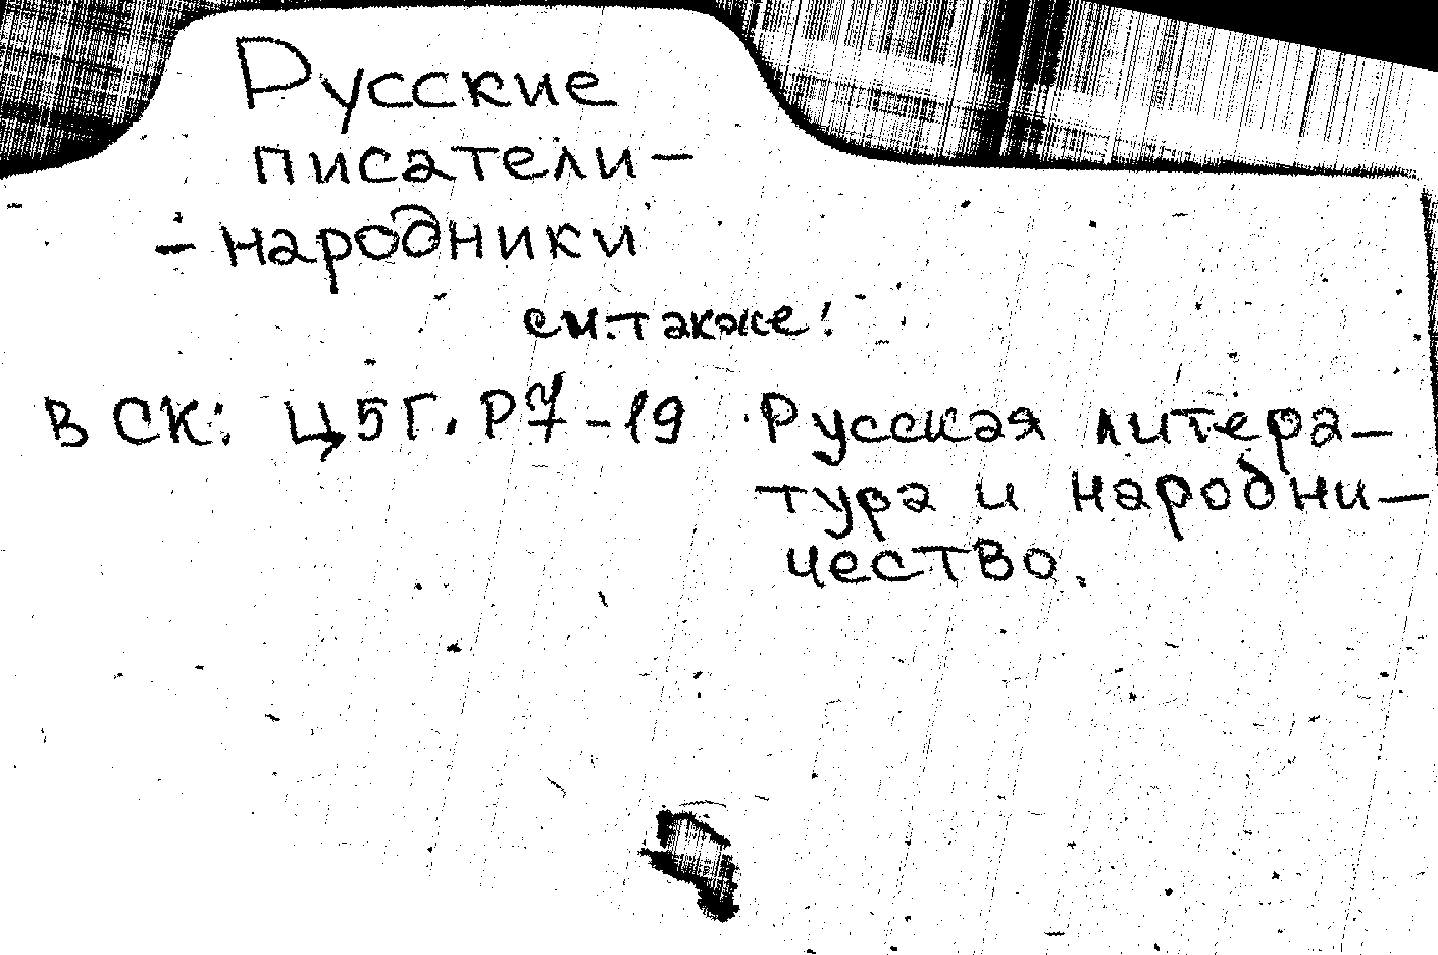 Русские
писатели-
-народники
см.также:
В СК: Ц5Г.Р7-19 Русская литера-
тура и народни-
чество.